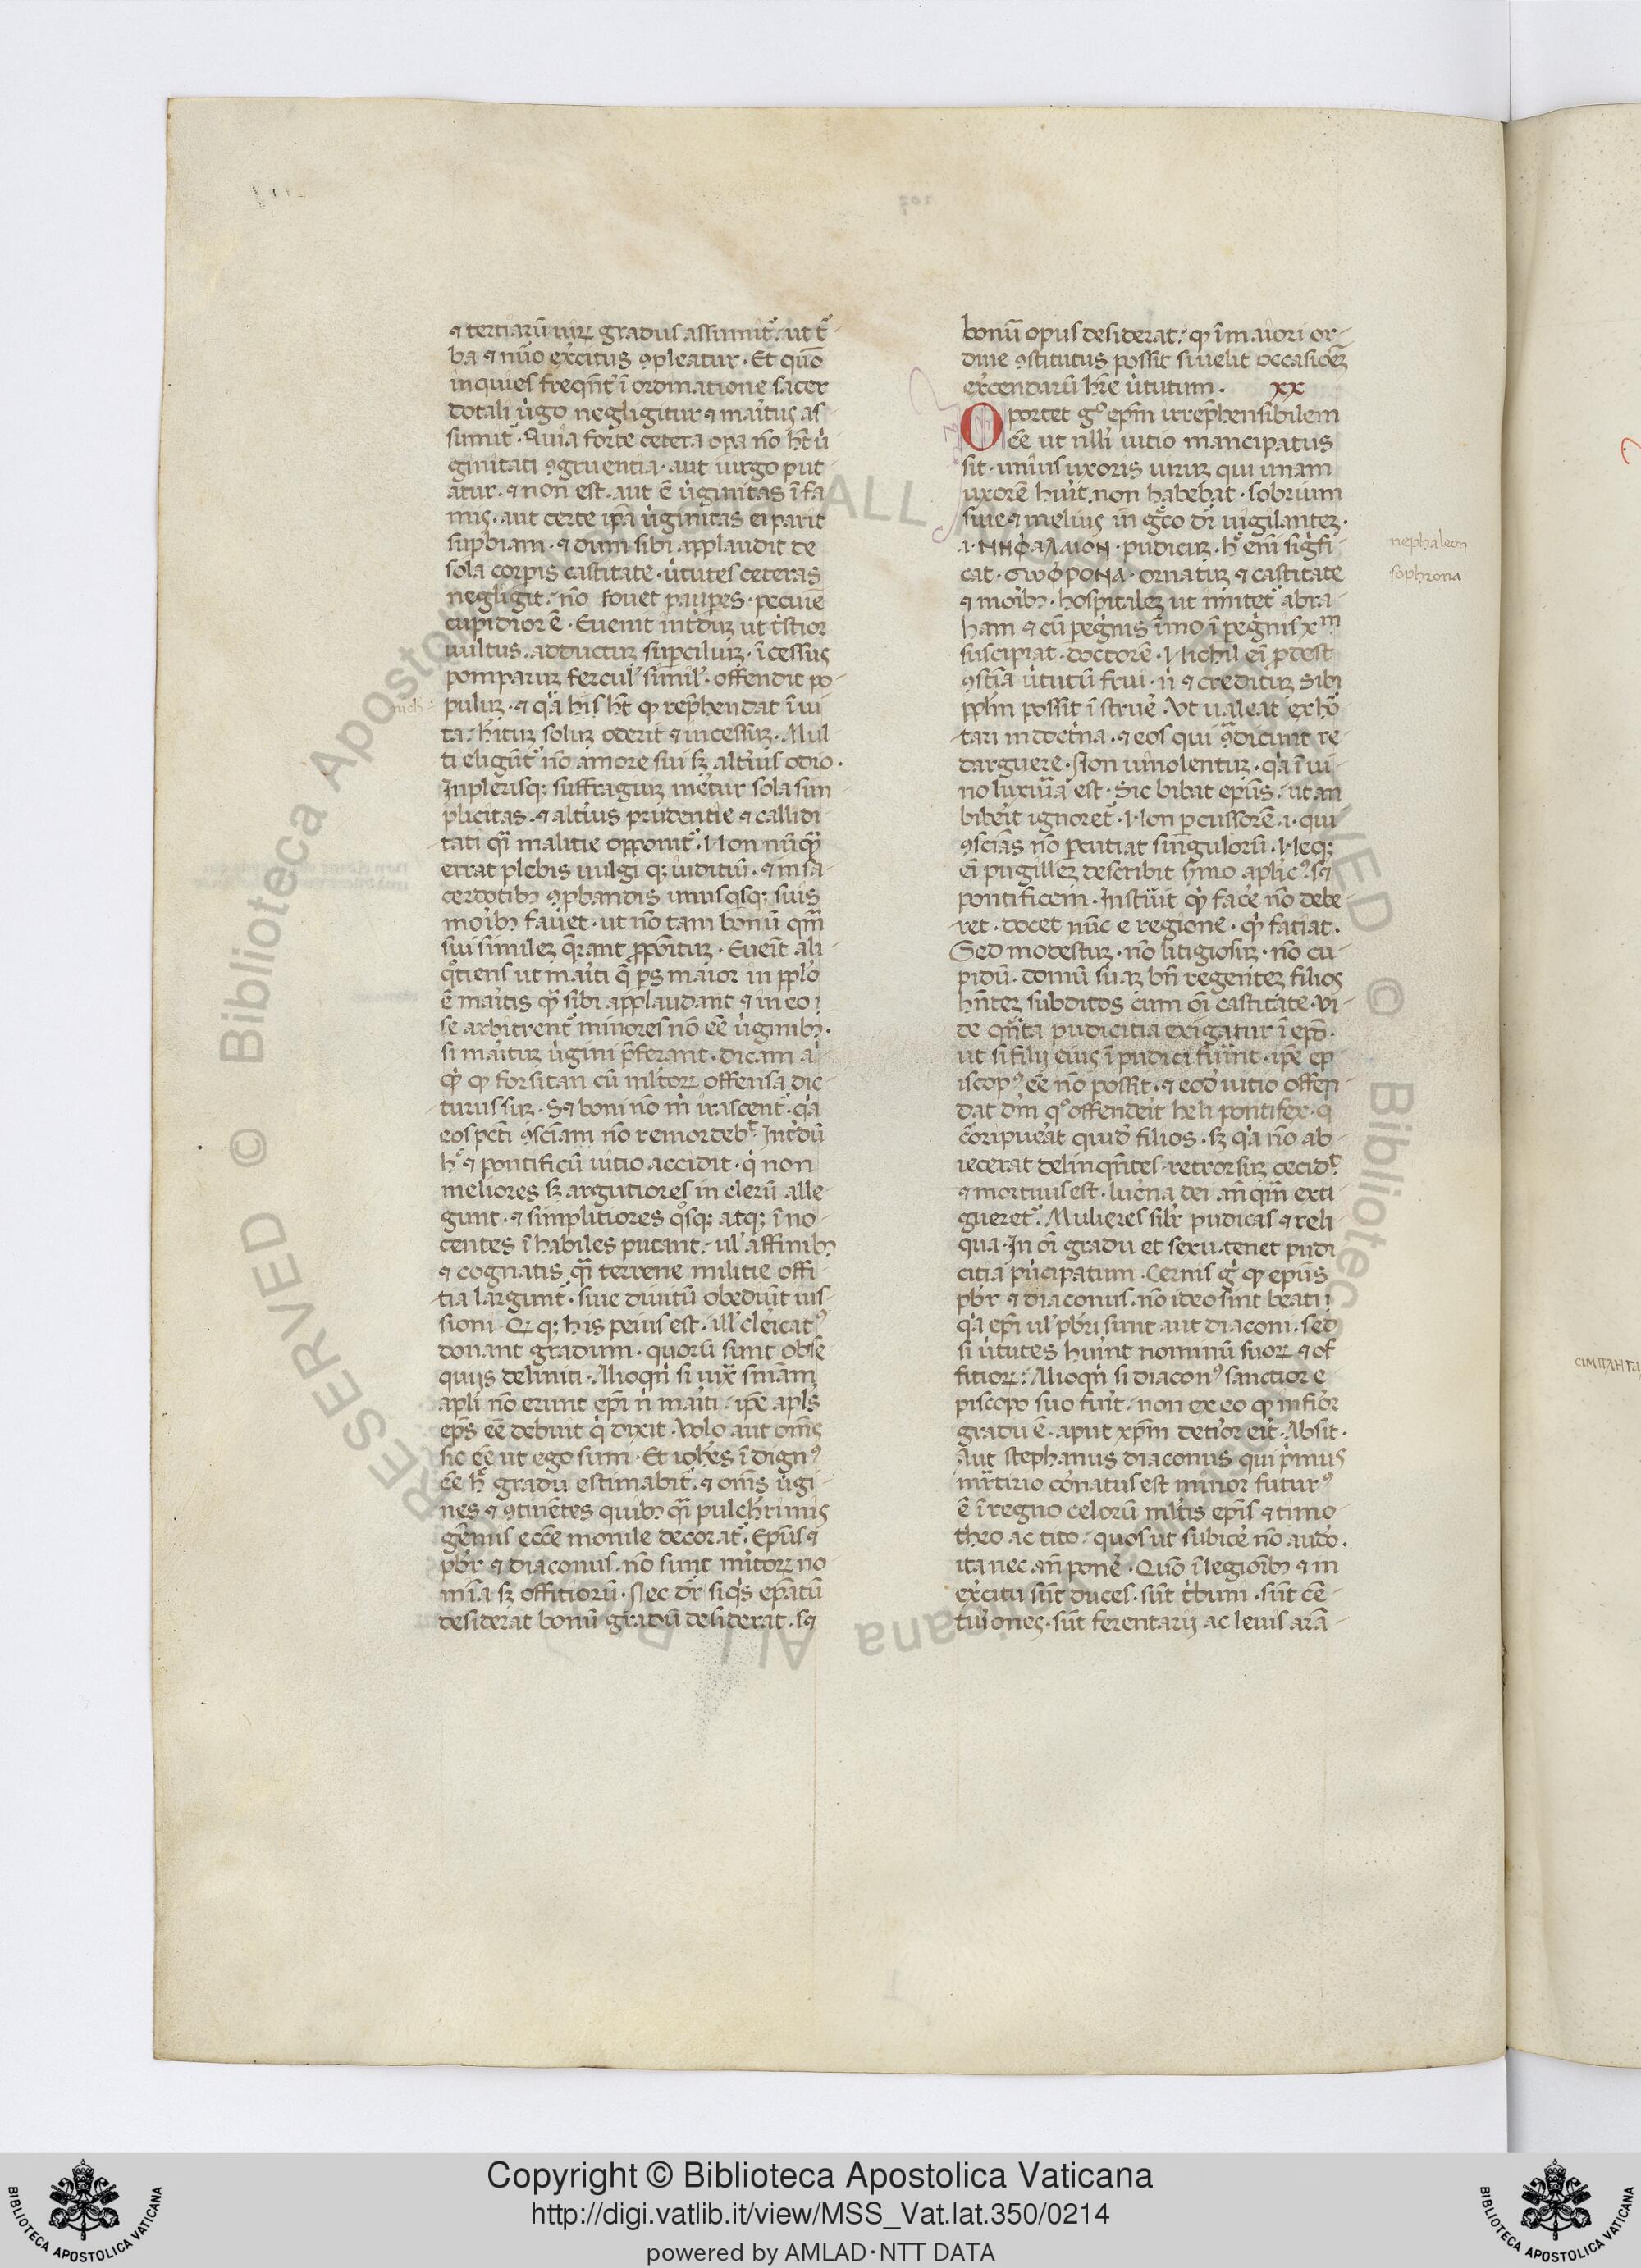 ⁊ tertiarũ uirꝝ gradus assumit᷑. ut t᷑
ba ⁊ nũo ex̾citus ꝯpleatur. Et quõ
inquies freqñt᷑ ĩ ordinatione sacer
dotali u̾go negligitur ⁊ mai̾tus as
sumit᷑. Quia forte cetera op̃a nõ hñt u̾
ginitati ꝯgruentia. aut uirgo put
atur. ⁊ non est. aut ẽ u̾ginitas ĩ fa
mis. aut certe ip̃a u̾ginitas ei parit
sup̱biam. ⁊ dum sibi applaudit de
sola corp̱is castitate. u̾tutes ceteras
negligit. nõ fouet paup̱es. pecuĩe
cupidior ẽ. Euenit int̾duꝫ ut tͥstior
uultus. adductuꝫ sup̱ciliuꝫ. ĩcessus
pomparuꝫ fercul᷑ simil᷑. offendit po-
puluꝫ. ⁊ qͥa nichil hñt ꝙ rep̃hendat ĩ ui
ta. hituꝫ soluꝫ oderit ⁊ incessuꝫ. Mul
ti eligũt᷑ nõ amore sui sꝫ alt̾ius odio.
Inplerisqꝫ suffragiuꝫ mer̾et᷑ur sola sim
plicitas. ⁊ alt̾ius prudentie ⁊ callidi
tati qͣi malitie opponit᷑. Non nũqͣ
errat plebis uulgi qꝫ iuditiũ. ⁊ in sa
cerdotibꝫ ꝯp̱bandis unusqͥsqꝫ suis
mor̾ibꝫ fauet. ut nõ tam bonũ qͣm
sui similem q̃rant p̱põituꝫ. Eueñit ali
qͦtiens ut mai̾ti q̃ p̱s maior in pplo
ẽ mai̾tis qͣi sibi applaudant ⁊ in eo
se arbitrent᷑ minores nõ eẽ u̾ginibꝫ.
si mai̾tuꝫ u̾gini p̃ferant. dicam a
qͥd ꝙ forsitan cũ ml̾torꝝ offensa dic
turus suꝫ. Sꝫ boni nõ m̾ irascent᷑. qͥa
eos pct̃i ꝯscĩam nõ remordeb᷑t. Int̾dũ
hͦ ⁊ pontificũ uitio accidit. qͥ non
meliores sꝫ argutiores in clerũ alle
gunt. ⁊ simplitiores qͦsqꝫ atqꝫ ĩno-
centes ĩhabiles putant. ul̾ affinibꝫ
⁊ cognatis qͣi terrene militie offi
tia largiunt᷑. siue diuitũ obediũt ius-
sioni. Qꝫ qꝫ his peius est. ill̾ cle̾icatꝰ
donant gradum. quorũ sunt obse
quijs deliniti. Alioqͥn si uix̾ sñiam
apl̃i nõ erunt ep̃i ñ mai̾ti. ip̃e apl̃s
ep̃s eẽ debuit qͥ dixit. Uolo aut om̃s
sic eẽ ut ego sum. Et ioh̃es ĩdignꝰ
eẽ hͦ gradu estimabit᷑. ⁊ om̃s u̾gi
nes ⁊ ꝯtinẽtes quibꝫ qͣi pulch̾rimis
gẽmis eccl̃e monile decorat᷑. Ep̃us ⁊
pb̃r ⁊ diaconus. nõ sunt mi̾torꝝ no
mĩa sꝫ offitiorũ. Nec dr̃ siqͥs ep̃atũ
desiderat bonũ gradũ desiderat. sꝫ
bonũ opus desiderat. ꝙ ĩ maiori or-
dine ꝯstitutus possit si uelit occasiõꝫ
ex̾cendarũ hr̃e u̾tutum. xx
Oportet gͦ ep̃m irrep̃hensibilem
eẽ ut nulli uitio mancipatus
sit. unius uxoris uiruꝫ qui unam
uxorẽ hu̾it. non habebat. sobrium
siue ⁊ melius in gͣco dr̃ uigilanteꝫ.
.i. ΝΗΦΑΛΑΙΟΝ. pudicuꝫ. hͦ eñi sig̃fi
cat. CΩΦΡΟΝΑ. ornatuꝫ ⁊ castitate
⁊ mor̾ibꝫ. hospitaleꝫ ut imitet᷑ abra
ham ⁊ cũ pegͥnis ĩmo ĩ pegͥnis xᵐ
suscipiat. doctorẽ. Nichil eĩ p̱dest
ꝯscĩa u̾tutũ frui. ñ ⁊ credituꝫ sibi
pplm possit ĩstrue̾. Ut ualeat exho̾
tari in doct̾na. ⁊ eos qui ꝯͣdicunt re
darguere. Non uinolentuꝫ. qͥa ĩ ui
no luxuͥa est. Sic bibat ep̃us. ut an
bibe̾it ignoret᷑. Non p̱cussorẽ .i. qui
ꝯscĩas nõ p̱cutiat singulorũ. Neqꝫ
eĩ pugilleꝫ describit s̾mo aplicꝰ. sꝫ
pontificem. Instituit qͥd face̾ nõ debe
ret. docet nũc e regione. qͥd fatiat.
Sed modestuꝫ. nõ litigiosuꝫ. nõ cu
pidũ. domũ suaꝫ bñ regenteꝫ filios
hñteꝫ subditos cum oĩ castitate. Ui
de qͣnta pudicitia exigatur ĩ ep̃o.
ut si filij eius ĩpudici fu̾int. ip̃e ep
iscopꝰ eẽ nõ possit. ⁊ eod̾ uitio offen
dat dm̃ qͦ offende̾it heli pontifex. q̃
co̾ripue̾at quid̾ filios. sꝫ qͥa nõ ab
iecerat delinqñtes. retrorsuꝫ cecidᵗ
⁊ mortuus est. luce̾na dei añ qͣm exti
gueret᷑. Mulieres sil̾r pudicas ⁊ reli
qua. In oĩ gradu et sexu. tenet pudi
citia pͥncipatum. Cernis gͦ ꝙ ep̃us
pb̃r ⁊ diaconus. nõ ideo sint beati
qͥa ep̃i ul̾ pb̃ri sunt aut diaconi. sed
si u̾tutes hu̾int nominũ suorꝝ ⁊ of
fitiorꝝ. Alioqͥn si diaconꝰ sanctior e
piscopo suo fu̾it. non ex eo ꝙ infio̾r
gradu ẽ. aput xp̃m detior e̾it. Absit.
Aut stephanus diaconus qui pͥmus
mr̃tirio co̾natus est minor futurꝰ
ẽ ĩ regno celorũ ml̾tis ep̃is ⁊ timo
theo ac tito. quos ut subice̾ nõ audeo.
ita nec añpone̾. Quõ ĩ legioĩbꝫ ⁊ in
ex̾citu sũt duces. sũt tͥbuni. sũt cẽ-
tuͥones. sũt ferentarij ac leuis armã-
nephaleon
sophrona
Copyright © Biblioteca Apostolica Vaticana
http://digi.vatlib.it/view/MSS_Vat.lat.350/0214
powered by AMLAD·NTT DATA
BIBLIOTECA APOSTOLICA VATICANA
BIBLIOTECA APOSTOLICA VATICANA